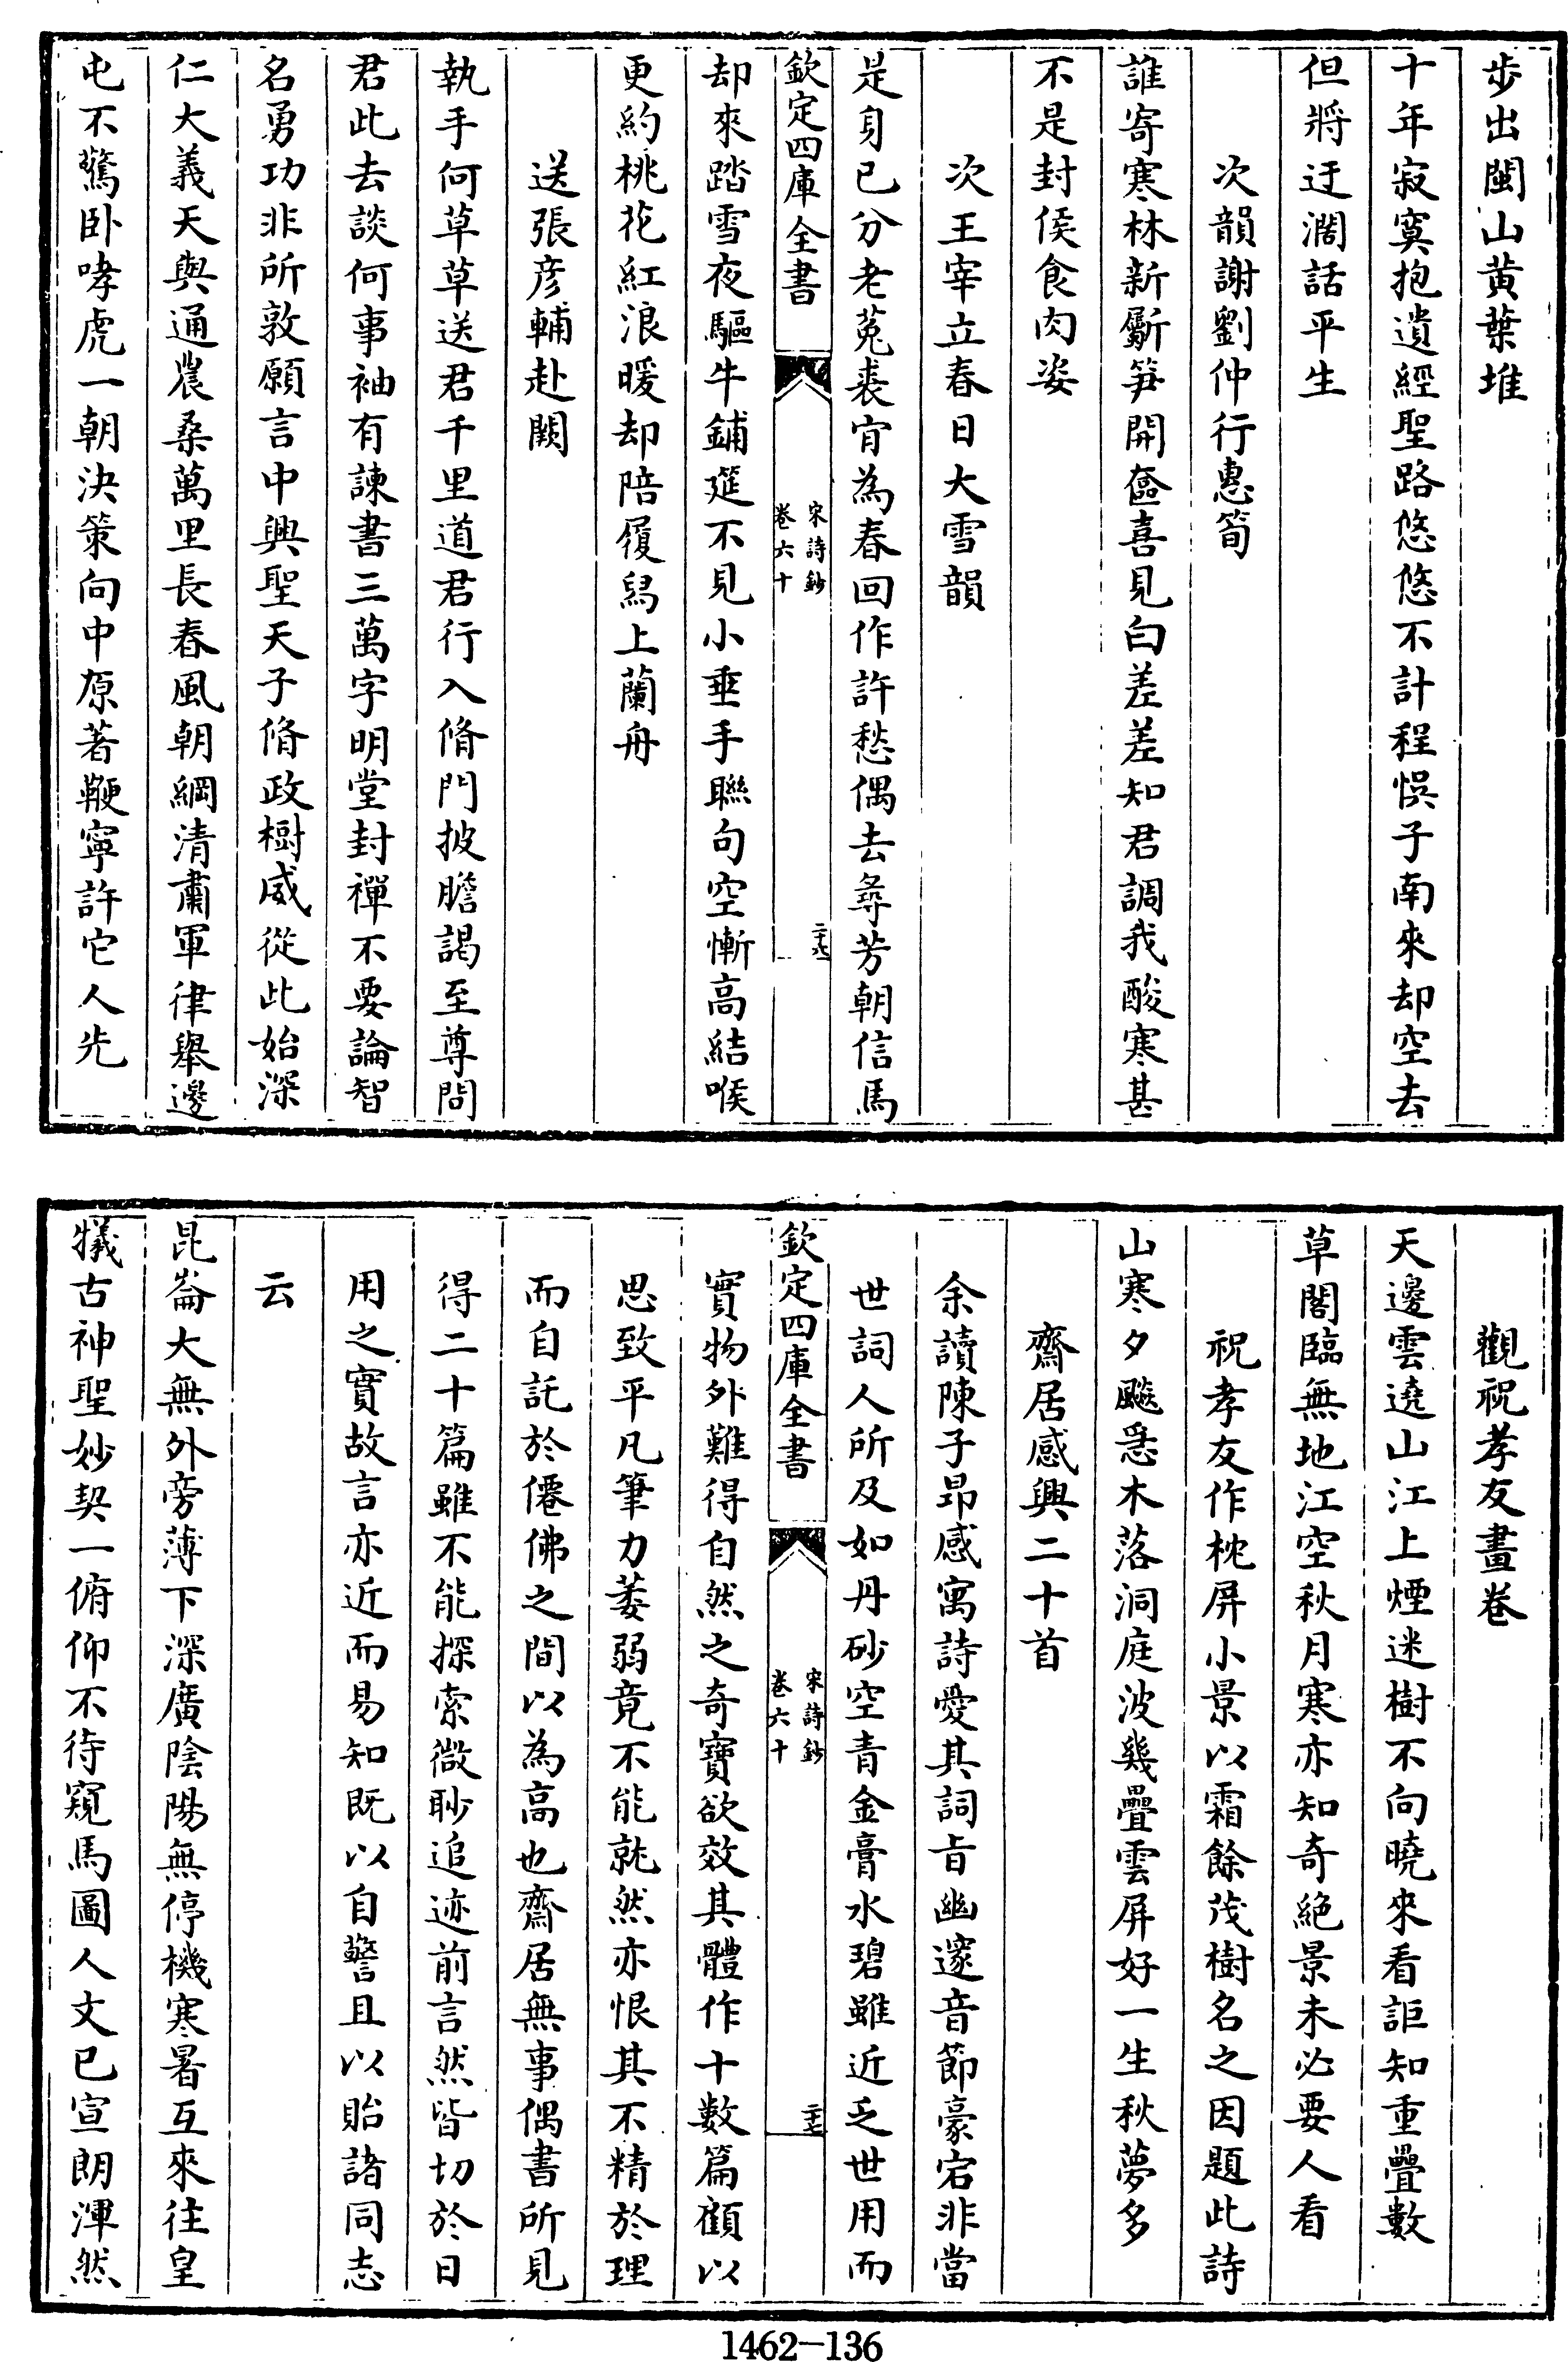 歩出閩山黃葉堆
十年寂寞抱遺經聖路悠悠不計程悞子南來却空去
但將迂濶話平生
次韻謝劉仲行惠筍
誰寄寒林新斸笋開奩喜見白差差知君調我酸寒甚
不是封侯食肉姿
次王宰立春日大雪韻
是身已分老菟裘肎為春回作許愁偶去尋芳朝信馬
欽定四庫全書
宋詩鈔
卷六十
二十六
却來踏雪夜驅牛鋪筵不見小垂手聯句空慚高結喉
更約桃花紅浪暖却陪履舄上蘭舟
送張彦輔赴闕
執手何草草送君千里道君行入脩門披膽謁至尊問
君此去談何事袖有諫書三萬字明堂封禪不要論智
名勇功非所敦願言中興聖天子脩政樹威從此始深
仁大義天與通農桑萬里長春風朝綱清肅軍律舉邊
屯不驚卧哮虎一朝決策向中原著鞭寧許它人先
觀祝孝友畫卷
天邊雲遶山江上煙迷樹不向曉來看詎知重疊數
草閣臨無地江空秋月寒亦知奇絕景未必要人看
祝孝友作枕屏小景以霜餘茂樹名之因題此詩
山寒夕飈急木落洞庭波幾疊雲屏好一生秋夢多
齋居感興二十首
余讀陳子昂感寓詩愛其詞旨幽邃音節豪宕非當
世詞人所及如丹砂空青金膏水碧雖近乏世用而
欽定四庫全書
宋詩鈔
卷六十
二十七
實物外難得自然之奇寶欲效其體作十數篇顧以
思致平凡筆力萎弱竟不能就然亦恨其不精於理
而自託於僊佛之間以為高也齋居無事偶書所見
得二十篇雖不能探索微眇追迹前言然皆切於日
用之實故言亦近而易知既以自警且以貽諸同志
云
昆崙大無外旁薄下深廣陰陽無停機寒暑互來往皇
犧古神聖妙契一俯仰不待窺馬圖人文已宣朗渾然
1462-136